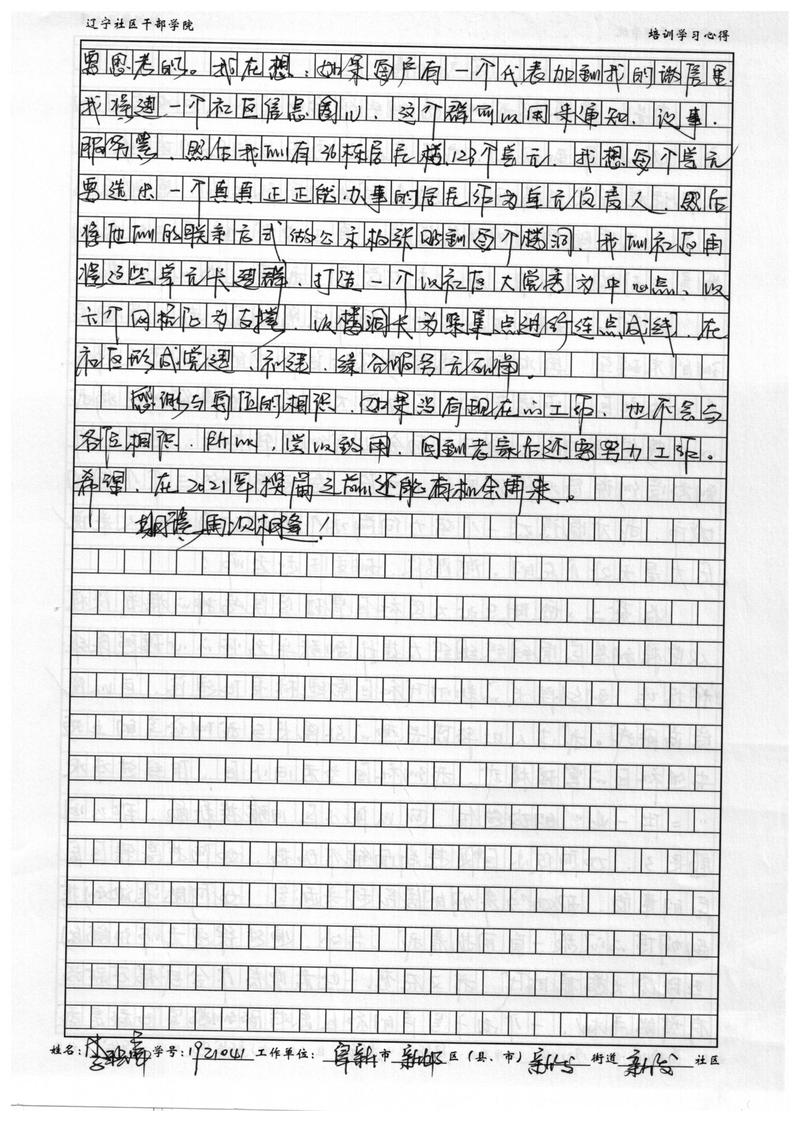 辽宁社区干部学院
培训学习心得
要思考的。我在想,如果每户有一个代表加到我的微信里
我将建一个社区信息,这个群可以用来通知、议事、
服务等,然后我们有36栋居民楼,123个单元,我想每个单元
要选出一个真真正正能办事的居民作为单元负责人,然后
将他们的联系方式做公示板张贴到每个楼洞,我们社区再
将这些单元长建群,打造一个以社区大党委为中心点,以
六个网格为支撑,以楼洞长为聚集点进行连点成线,在
社区形成党建、社建、综合服务元。
感谢与每位的相识,如果没有现在的工作,也不会与
各位相识,所以,学以致用,回到老家后还需努力工作。
希望,在2021年换届之前还能有机会再来。
期待再次相逢!
姓名: 学号:1921041 工作单位: 阜新市 新邱区(县、市) 街道 社区